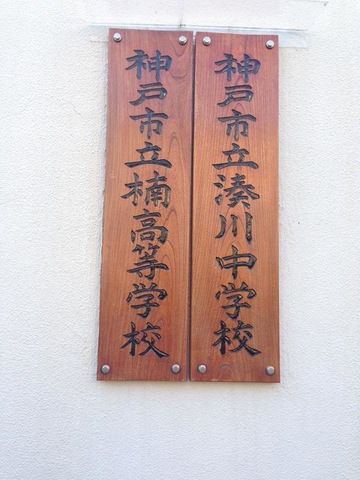 神戸市立湊川中学校
神戸市立楠高等学校